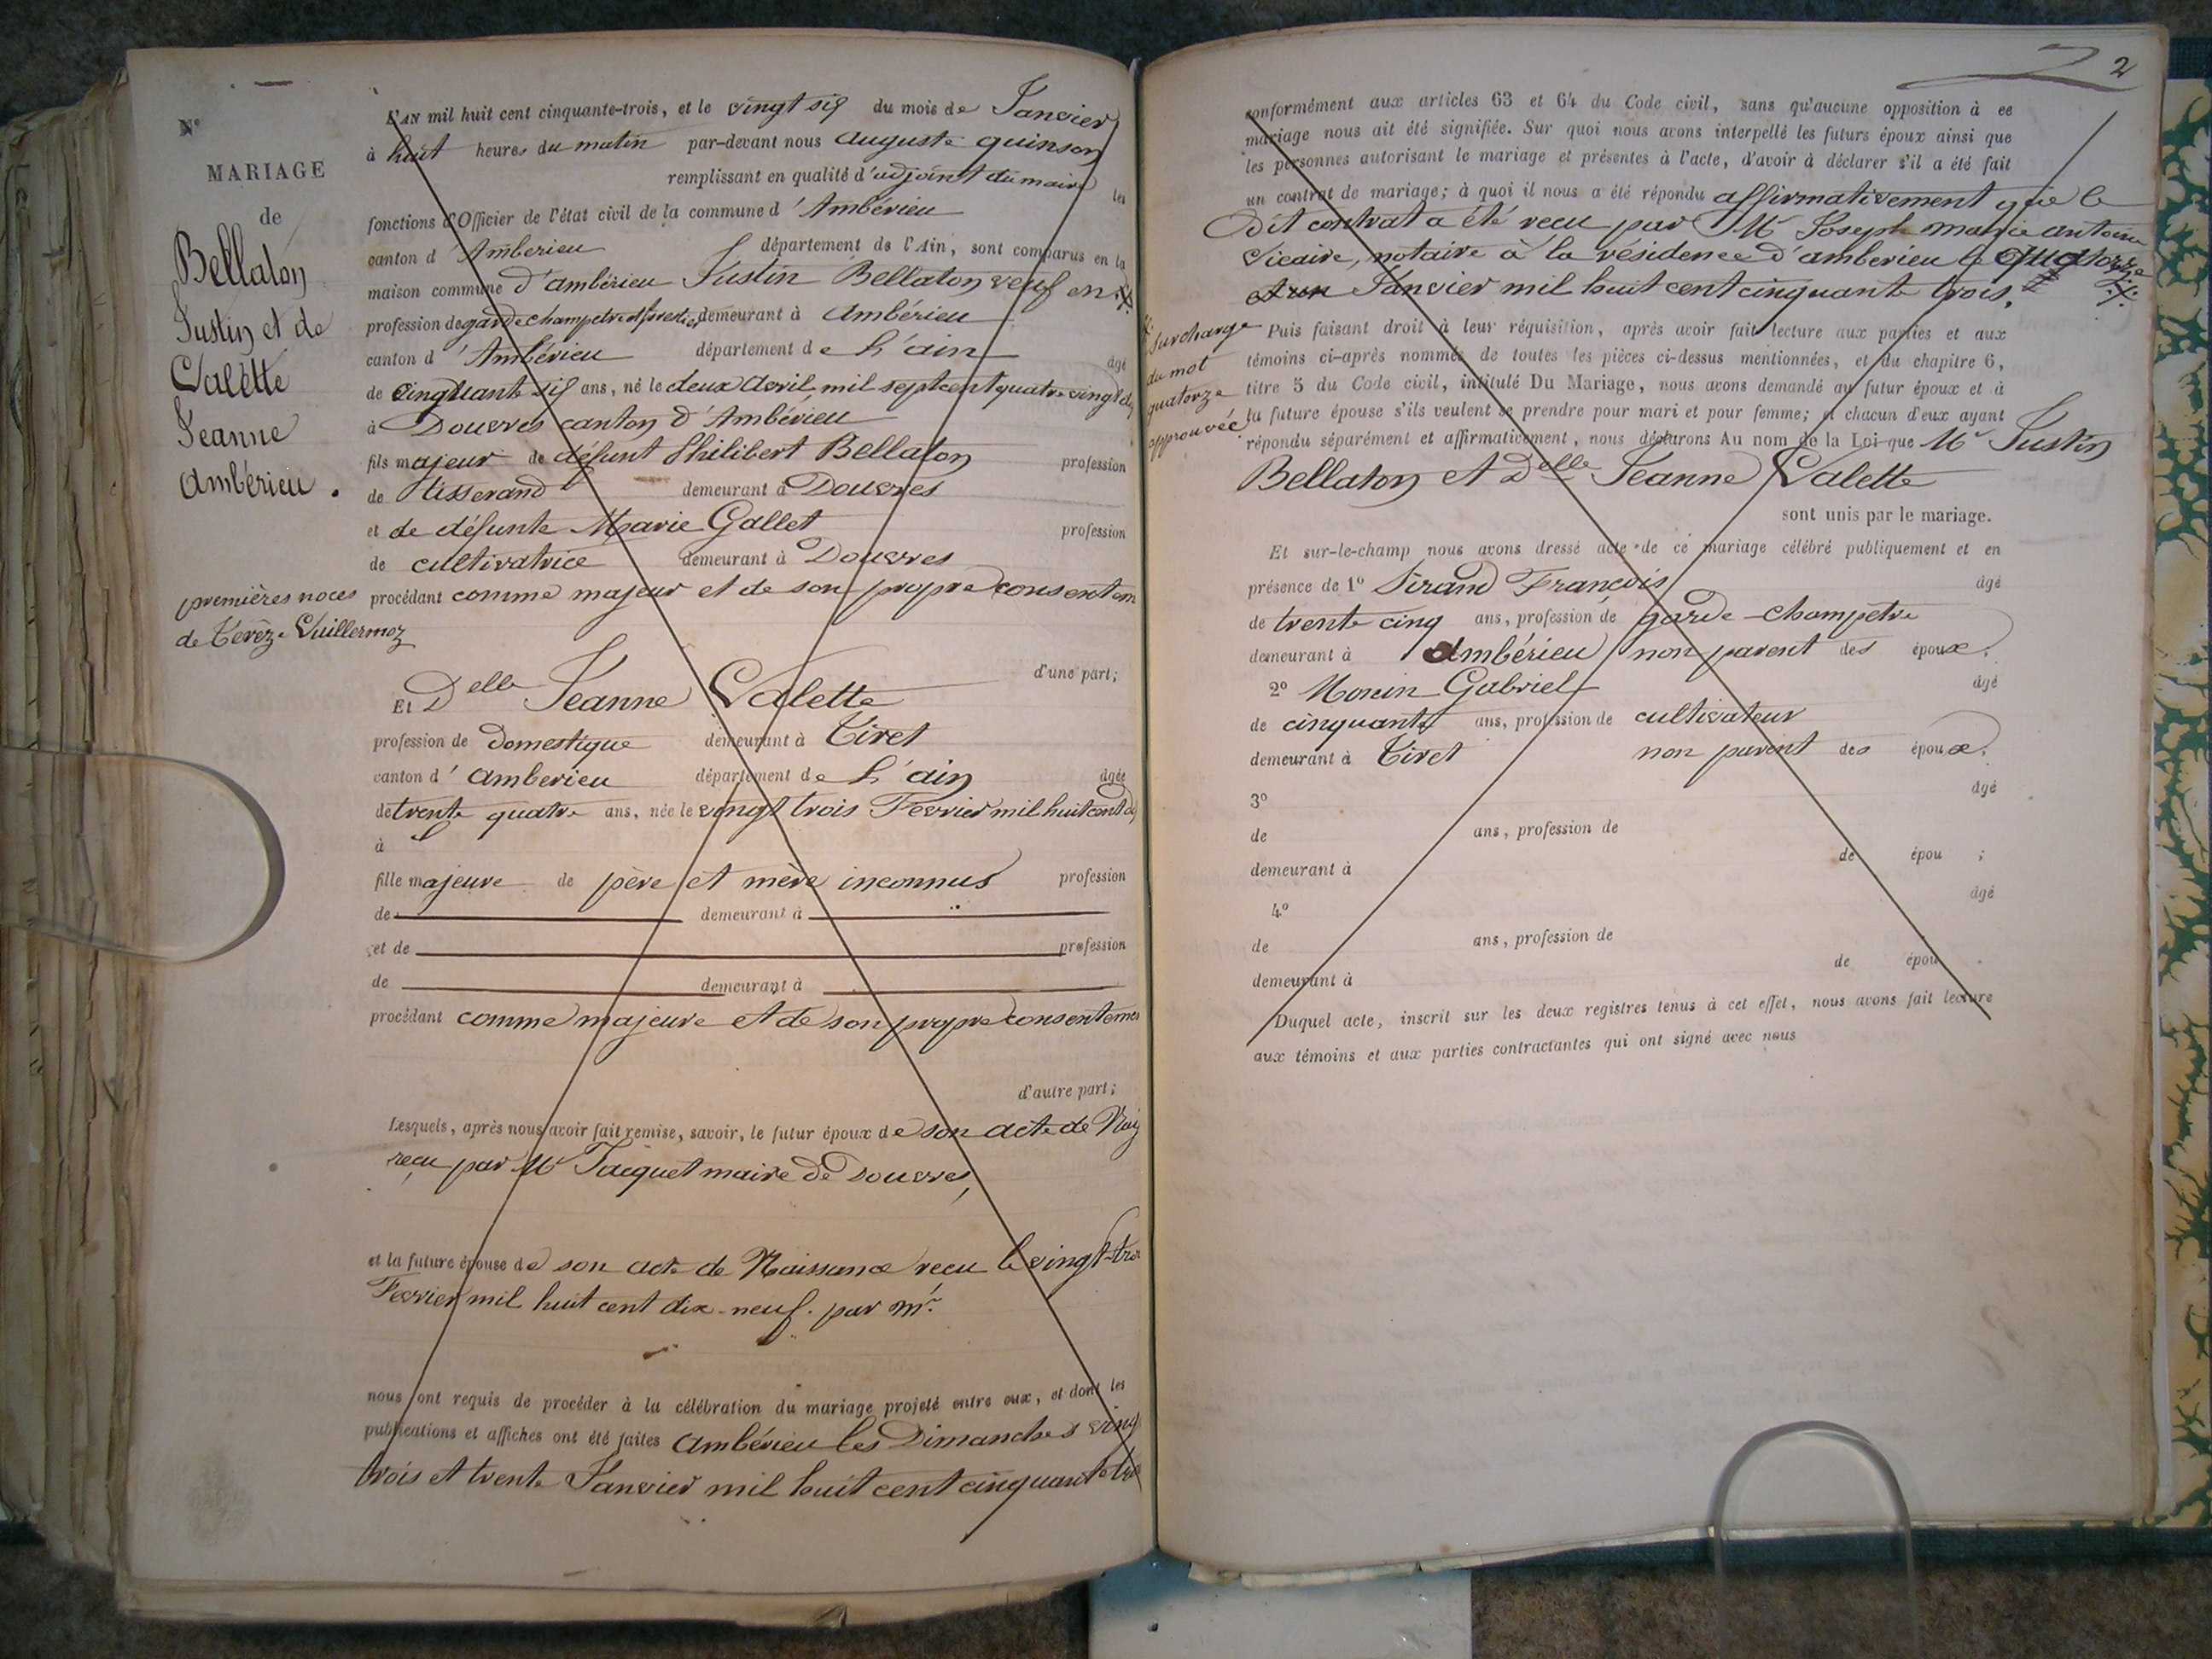 N°
MARIAGE
de
Bellaton
Justin et de
Valette
Jeanne
Ambérieu.
premières noces
de Térèze Vuillermoz
L'AN mil huit cent cinquante-trois, et le vingt six du mois de Janvier
à huit heures du matin par-devant nous Auguste quinson
remplissant en qualité d'adjoint du maire les
fonctions d'Officier de l'état civil de la commune d'Ambérieu
canton d'Amberieu département de l'Ain, sont comparus en la
maison commune d'ambérieu Justin Bellaton veuf en
profession de garde champetre et forestier demeurant à Ambérieu
canton d'Ambérieu département de L'ain âgé
de Cinquante six ans, né le deux Avril mil sept cent quatre vingt
à Douvres canton d'Ambérieu
fils majeur de défunt Philibert Bellaton profession
de tisserand demeurant à Douvres
et de défunte Marie Gallet profession
de cultivatrice demeurant à Douvres
procédant comme majeur et de son propre consentem
d'une part;
Et Delle Jeanne Valette
profession de Domestique demeurant à Tiret
canton d'Amberieu département de L'ain âgée
de trente quatre ans, née le vingt trois Fevrier mil huit cent
à
fille majeure de père et mère inconnus profession
de demeurant à
et de profession
de demeurant à
procédant comme majeure et de son propre consenteme
d'autre part;
Lesquels, après nous avoir fait remise, savoir, le futur époux de son acte de Nais
reçu par Mr Jacquet maire de Douvres,
et la future épouse de son acte de Naissance recu le vingt-troi
Fevrier mil huit cent dix-neuf. par Mr.
nous ont requis de procéder à la célébration du mariage projeté entre eux, et dont les
publications et affiches ont été faites Ambérieu les Dimanches ving
trois et trente Janvier mil huit cent cinquante tro
2
conformément aux articles 63 et 64 du Code civil, sans qu'aucune opposition à ce
mariage nous ait été signifiée. Sur quoi nous avons interpellé les futurs époux ainsi que
les personnes autorisant le mariage et présentes à l'acte, d'avoir à déclarer s'il a été fait
un contrat de mariage; à quoi il nous a été répondu affirmativement que le
Dit contrat a été recu par Me Joseph Marie antoine
Vicaire, notaire à la résidence d'amberieu le quatorze
Janvier mil huit cent cinquante trois.
Surcharge
du mot
quatorze
approuvée
Puis faisant droit à leur réquisition, après avoir fait lecture aux parties et aux
témoins ci-après nommés de toutes les pièces ci-dessus mentionnées, et du chapitre 6,
titre 5 du Code civil, intitulé Du Mariage, nous avons demandé au futur époux et à
la future épouse s'ils veulent se prendre pour mari et pour femme; et chacun d'eux ayant
répondu séparément et affirmativement, nous déclarons Au nom de la Loi que Mr Justin
Bellaton et Delle Jeanne Valette
sont unis par le mariage.
Et sur-le-champ nous avons dressé acte de ce mariage célébré publiquement et en
présence de 1° Sirand François âgé
de trente cinq ans, profession de garde-champêtre
demeurant à Ambérieu non parent des époux,
2° Monin Gabriel âgé
de cinquante ans, profession de cultivateur
demeurant à Tiret non parent des époux;
3° âgé
de ans, profession de
demeurant à de épou ;
4° âgé
de ans, profession de
demeurant à de épou .
Duquel acte, inscrit sur les deux registres tenus à cet effet, nous avons fait lecture
aux témoins et aux parties contractantes qui ont signé avec nous